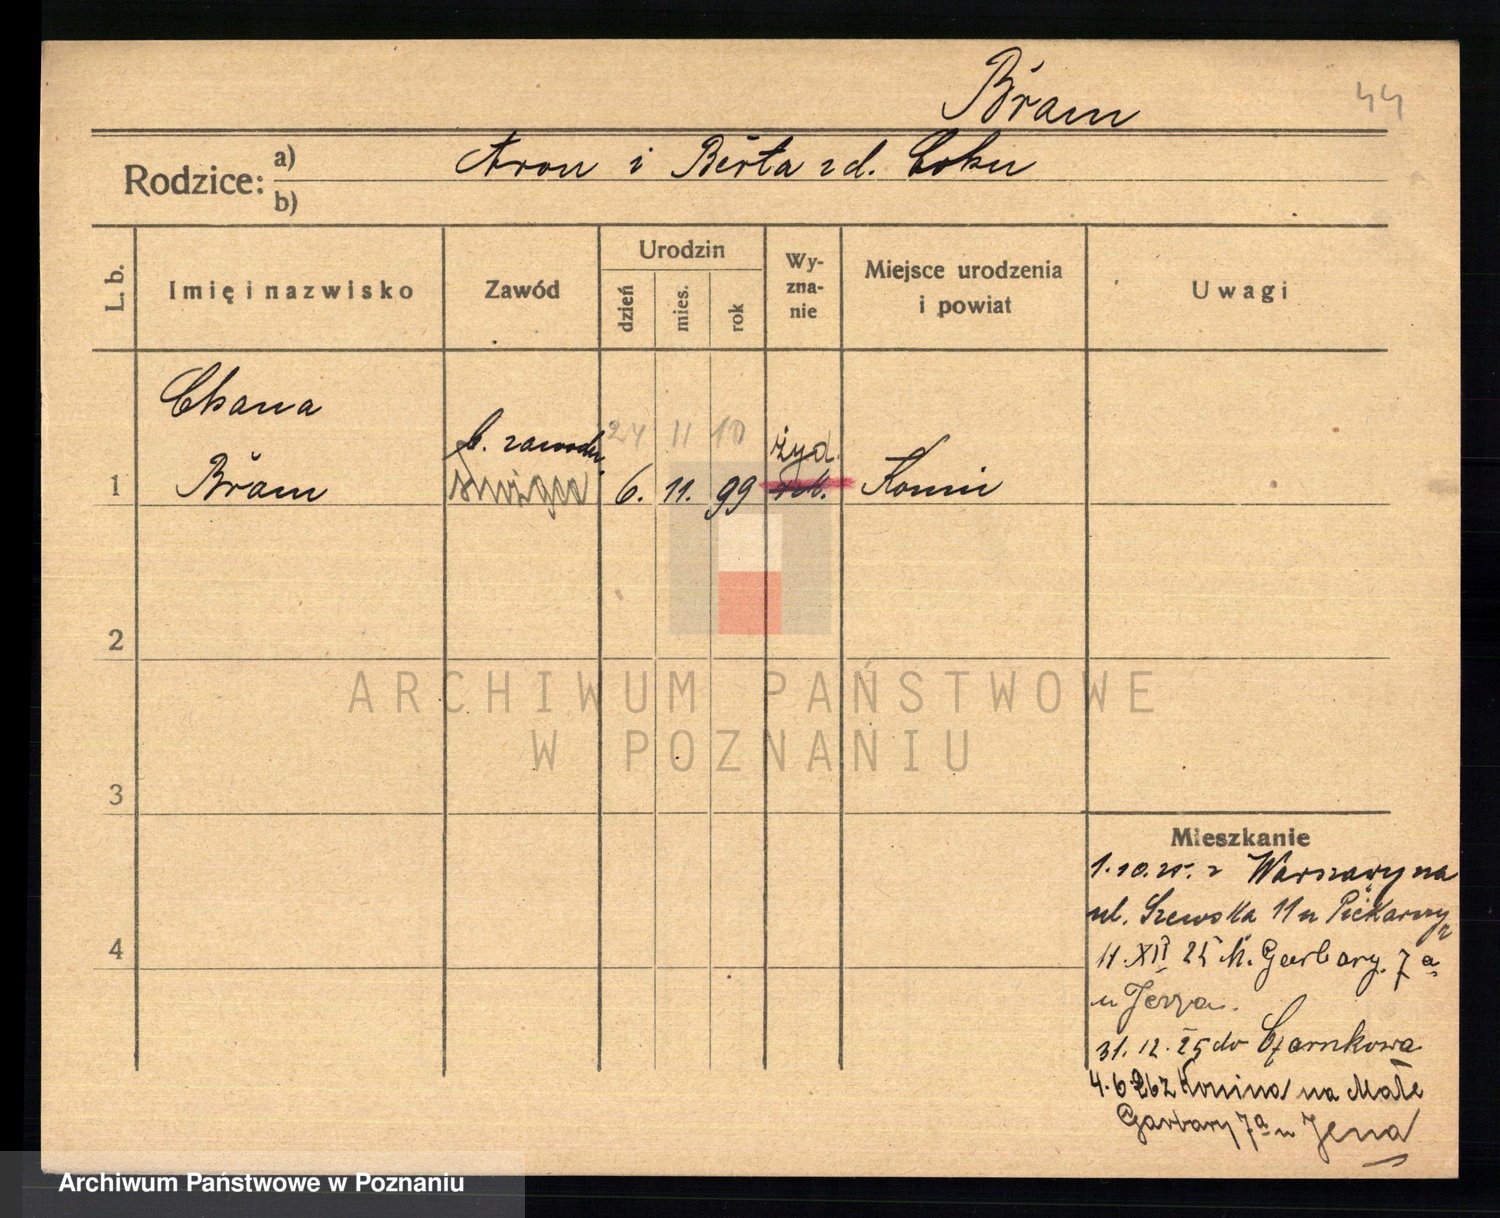 Bram
44
Rodzice: a) b)
Aron i Berta zd. Cohn
L. b.
Imię i nazwisko
Zawód
Urodzin
dzień
mies.
rok
Wy-
zna-
nie
Miejsce urodzenia
i powiat
Uwagi
Chana
b. zawodu
24 11 10
żyd.
1
Bram
służąca
6. 11. 99
Konin
2
ARCHIWUM PAŃSTWOWE
W POZNANIU
3
Mieszkanie
1.10.25. z Warszawy na
ul. Szewska 11 u Piekarczyk
4
11.XII 25 M. Garbary. 7a
u Jerza.
31.12.25 do Czarnkowa
4.6.26 z Konina na Małe
Garbary 7a u
Archiwum Państwowe w Poznaniu